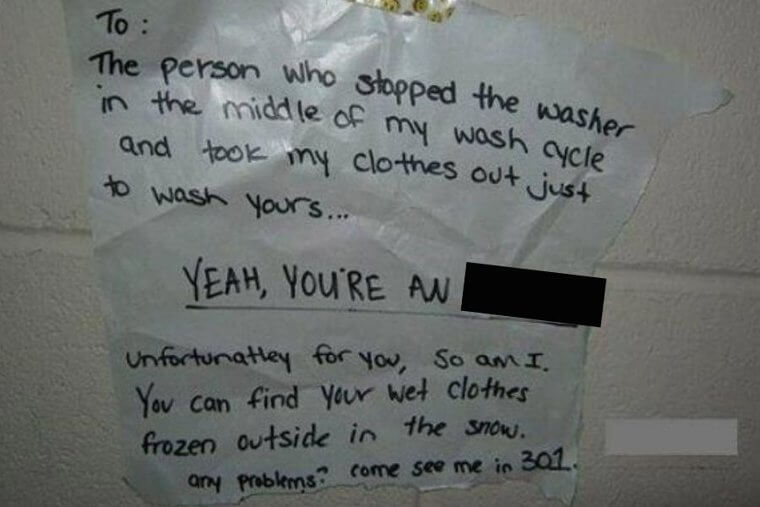 To :
The person who stopped the washer
in the middle of my wash cycle
and took my clothes out just
to wash yours...
YEAH, YOU'RE AN
Unfortunatley for you, so am I.
You can find your wet clothes
frozen outside in the snow.
any problems? come see me in 301.